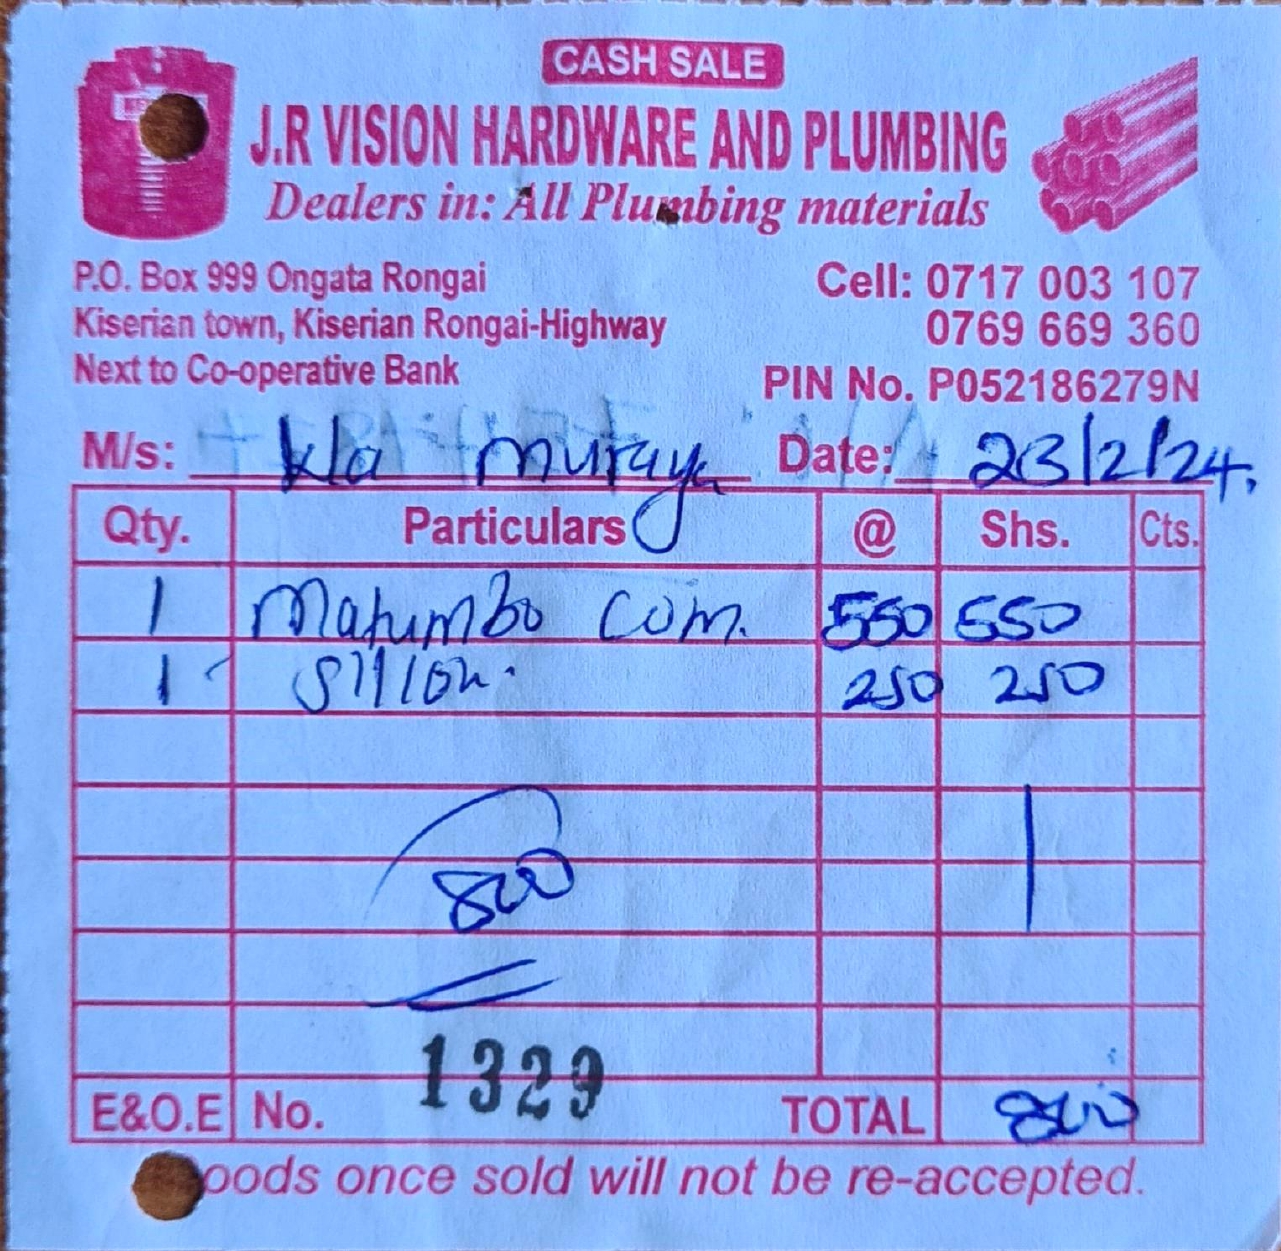 CASH SALE
J.R VISION HARDWARE AND PLUMBING
Dealers in: All Plumbing materials
P.O. Box 999 Ongata Rongai
Kiserian town, Kiserian Rongai-Highway
Next to Co-operative Bank
Cell: 0717 003 107
0769 669 360
PIN No. P052186279N
M/s: Date: 23/2/24.
Qty. Particulars @ Shs. Cts.
1 Matumbo com. 550 550
1 250 250
800
1329
E&O.E No. TOTAL 800
oods once sold will not be re-accepted.